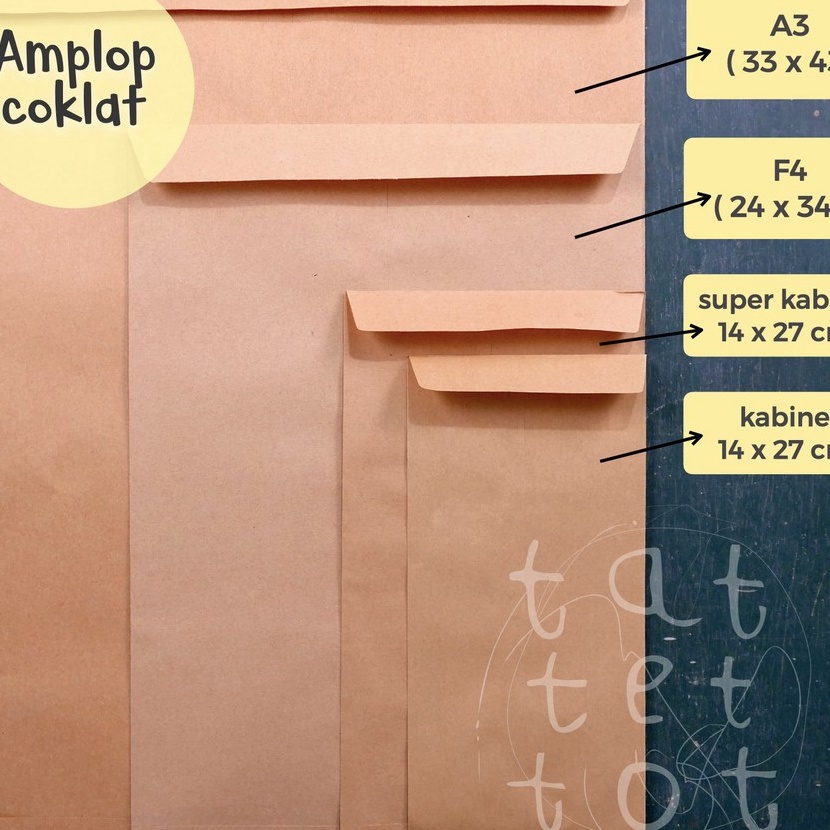 Amplop
coklat
A3
( 33 x
F4
( 24 x 34
super
14 x 27
14 x 27
tat
tet
tot